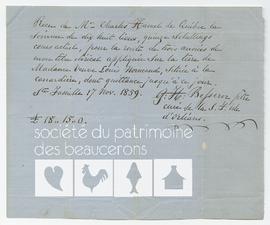 Reçu de Mr Charles Hamel de Québec la
somme de dix huit livres, quinze schellings
cours actuel, pour la rente de trois années de
mon titre clérical appliqué sur la terre de
Madame veuve Louis Normand, sitée à la
canardière, dont quittance jusqu'à ce jour
Ste Famille 17 Nov. 1859.
£ 18 .. 15 .. 0
ptre
curé de la S. F. île
d'Orléans.
société du patrimoine
des beaucerons